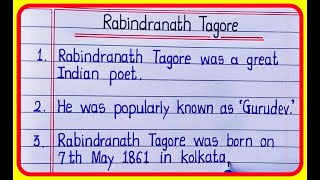 Rabindranath Tagore
1. Rabindranath Tagore was a great
Indian poet.
2. He was popularly known as 'Gurudev.'
3. Rabindranath Tagore was born on
7th May 1861 in kolkata,